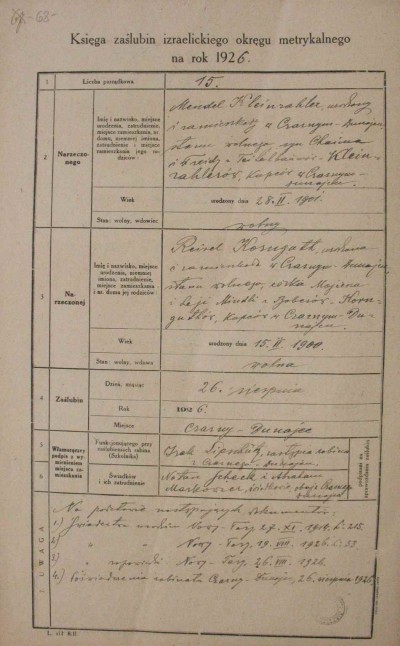 Gf.-68-
Księga zaślubin izraelickiego okręgu metrykalnego
na rok 1926.
1
Liczba porządkowa.
15.
2
Narzeczo-
nego
Imię i nazwisko, miejsce
urodzenia, zatrudnienie,
miejsce zamieszkania, nr.
domu, niemniej imiona,
zatrudnienie i miejsce
zamieszkania jego ro-
dziców
Mendel Kleinzahler, urodzony
i zamieszkały w Czarnym-Dunajcu,
stanu wolnego, syn Chaima
i Freidy z Teitelbaumów-Klein-
zahlerów, kupców w Czarnym-
Dunajcu.
Wiek
urodzony dnia 28. II. 1901.
Stan: wolny, wdowiec
wolny
3
Na-
rzeczonej
Imię i nazwisko, miejsce
urodzenia, niemniej
imiona, zatrudnienie,
miejsce zamieszkania
i nr. domu jej rodziców
Reisel Korngutt, urodzona
i zamieszkała w Czarnym-Dunajcu
stanu wolnego, córka Majera
i Korn-
guttów, kupców w Czarnym-Du-
najcu.
Wiek
urodzony dnia 15. II. 1900.
Stan: wolny, wdowa
wolna
4
Zaślubin
Dzień, miesiąc
26. sierpnia
Rok
1926.
Miejsce
Czarny-Dunajec
5
Własnoręczny
podpis z wy-
mienieniem
miejsca za-
mieszkania
Funkcjonującego przy
zaślubinach rabina
(Szkolnika)
Izak Lipschütz, zastępca rabina
z Czarnego-Dunajca.
6
Świadków
i ich zatrudnienie
Natan Scheck i Abraham
Markowicz, świadkowie, obaj z Czarnego
Dunajca
podpisani na
świadectwie
7. UWAGA
Na podstawie następujących dokumentów:
1.) Świadectwo urodzin Nowy-Targ 27. XI. 1919. L. 215.
2.) " " Nowy-Targ 19. VIII. 1926. L. 33.
3.) " zapowiedzi Nowy-Targ, 26. VIII. 1926.
4.) Poświadczenie rabinatu Czarny-Dunajec, 26. sierpnia 1926.